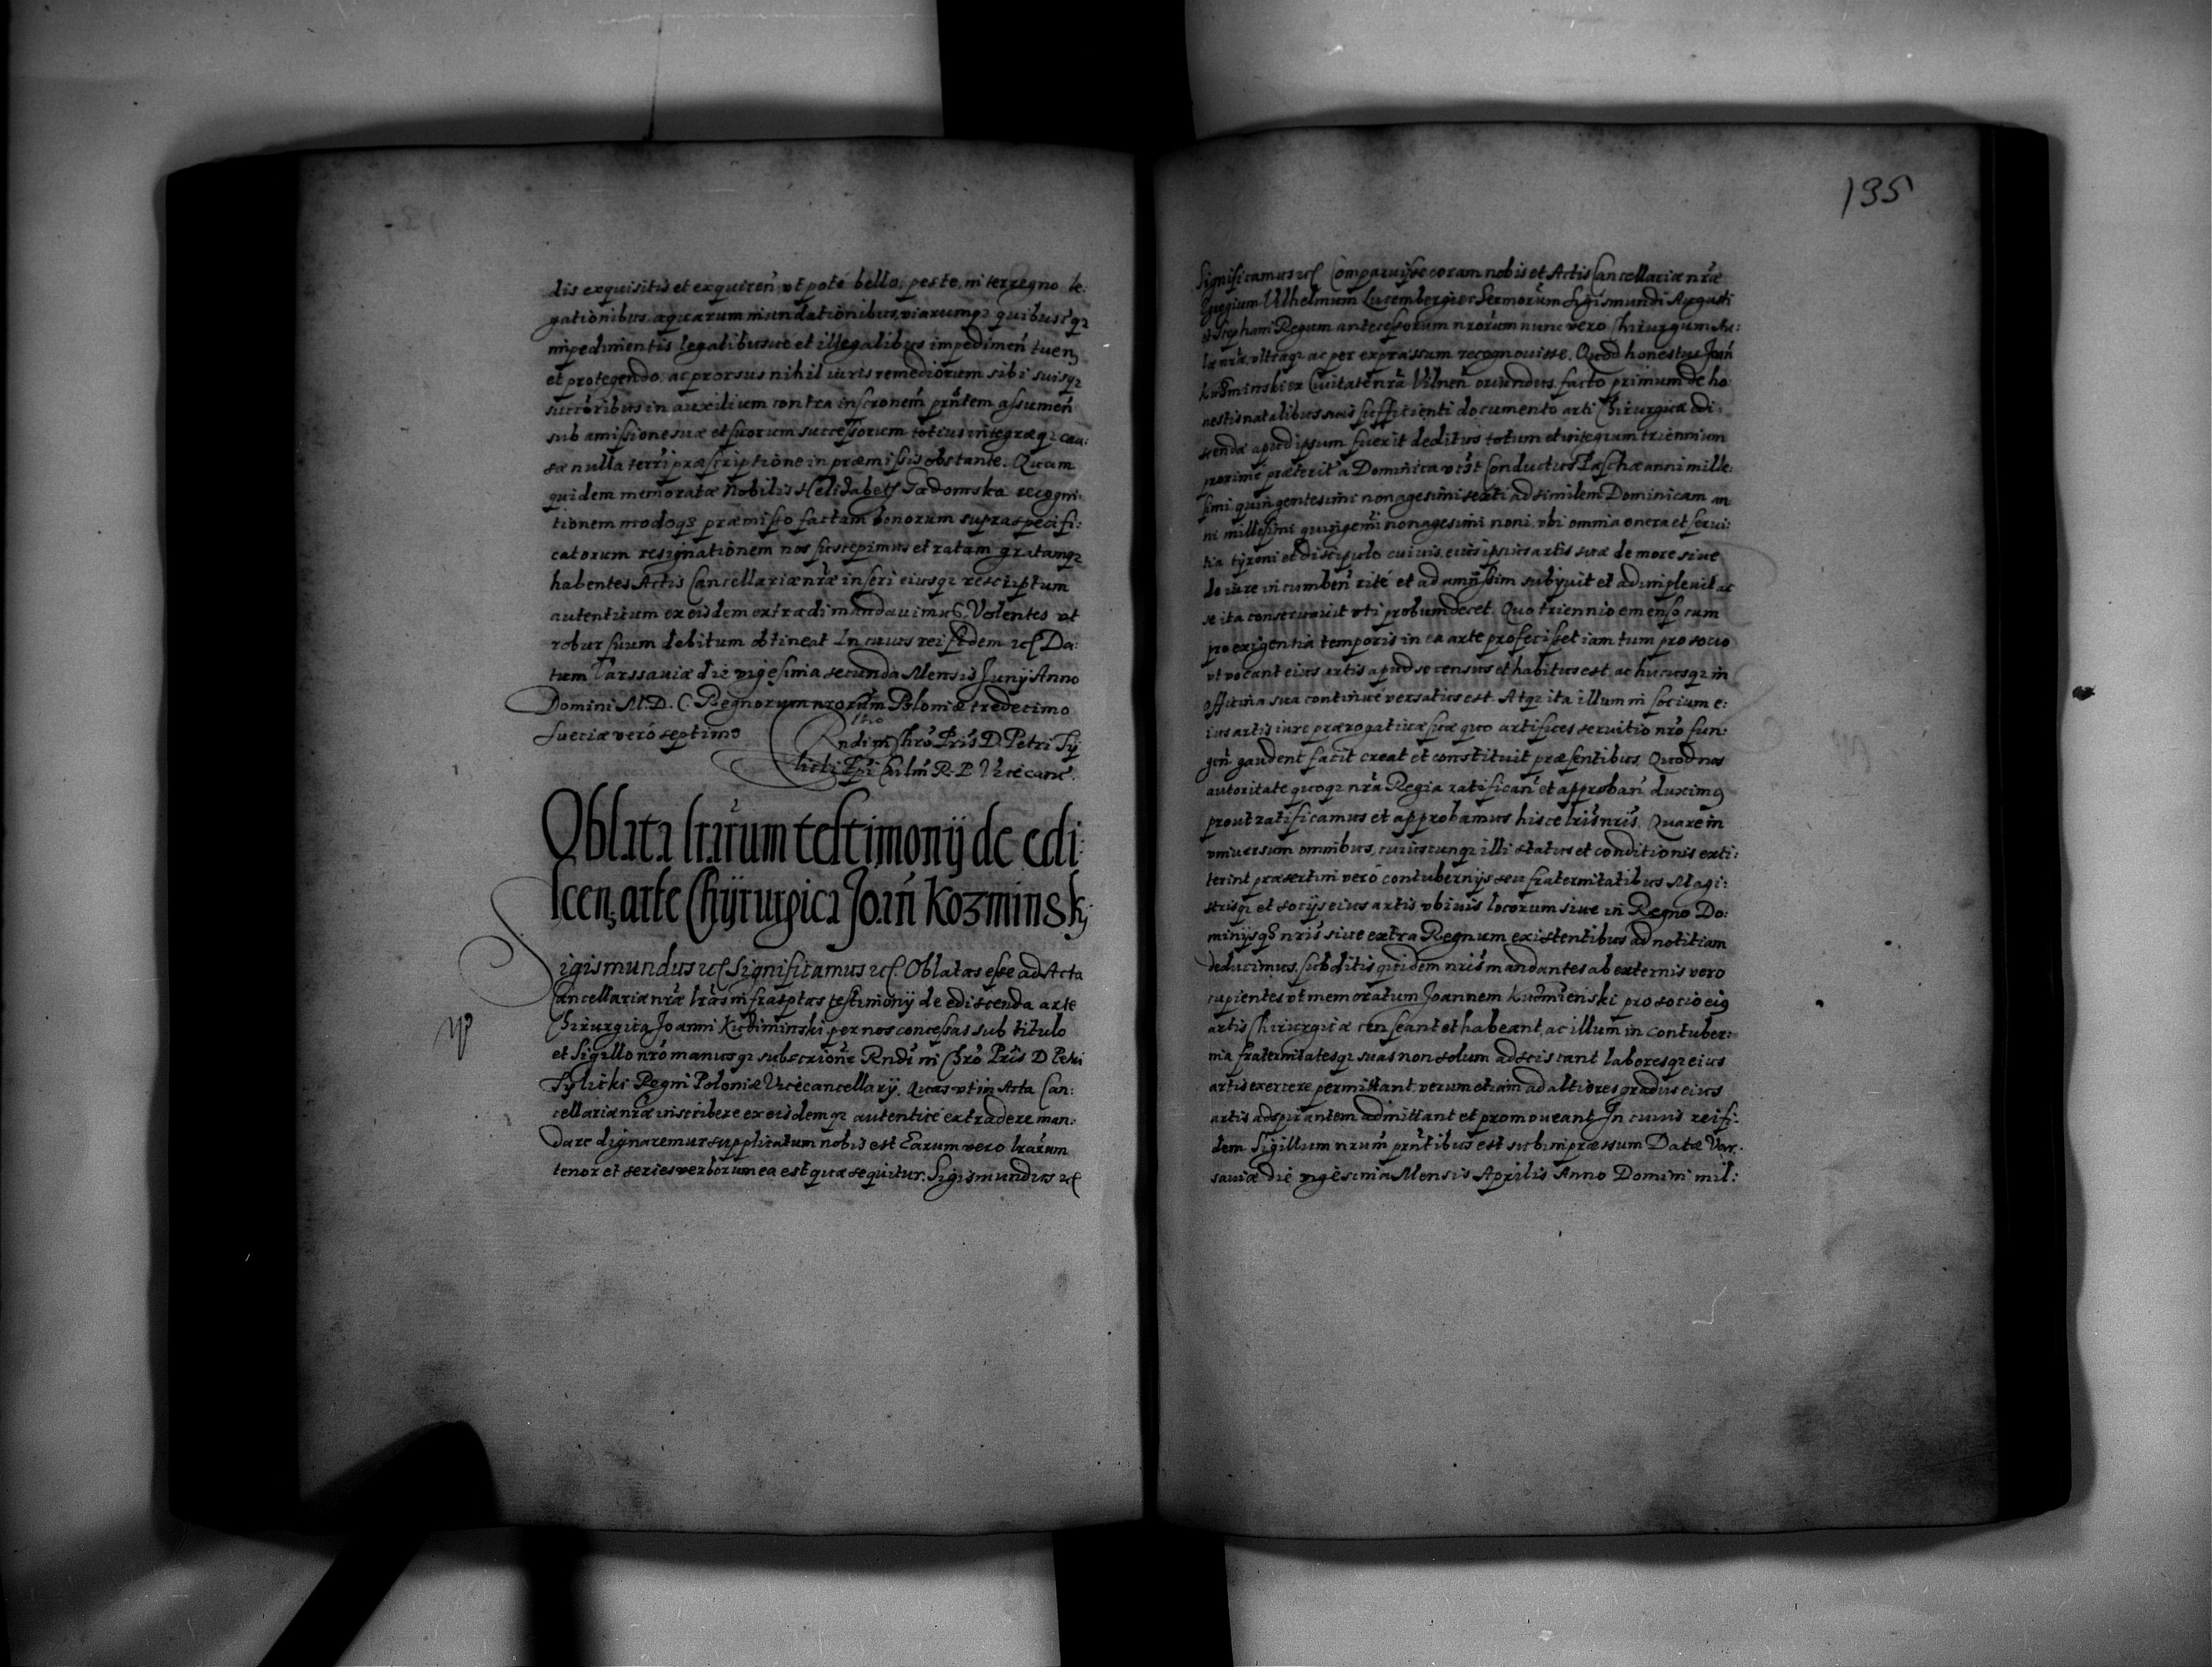 dis exquisitis et exquiren̄ ut poté bello, peste, interregno le:
gationibus aquarum inundationibus, viarumqꝫ quibuscꝗꝫ
impedimentis legalibusue et illegalibus impedimen̄ tuen̄
et protegendo, ac prorsus nihil iuris remediorum sibi suisqꝫ
succōribus in auxilium contra inscronem̄ prn̄tem assumen̄
sub amissione suæ et suorum successorum totius integræqꝫ cau:
sæ nulla terrī præscriptione in præmissis obstante. Quam
quidem memoratæ Nobilis Helisabeth Gadomska recogni:
tionem modoqꝫ præmisso factam bonorum supraspecifi:
catorum resignationem nos suscepimus et ratam gratamqꝫ
habentes Actis Cancellariæ nrǣ inseri eiusqꝫ rescriptum
autenticum ex eisdem extradi mandauimus. Volentes ut
robur suum debitum obtineat In cuius rei fidem ꝛc̃ Da:
tum Varssauiæ die vigesima secunda Mensis Junij Anno
Domini M.D.C. Regnorum nrorūm Poloniæ tredecimo
Sueciæ verò septimo
Rndi in Chrō Prīs D. Petri Ty
licki Epī Culm̄ R. P. Vicecanc̄.
Oblata lrārum testimonij de edi
scen; arte Chÿrurgica Joan̄ Kozminsky
Sigismundus ꝛc̃ Significamus ꝛc̃. Oblatas esse ad Acta
Cancellariæ nrǣ lrās infrasptas testimonij de ediscenda arte
Chirurgica Joanni Kuzminski per nos concessas sub titulo
et Sigillo nrō manusqꝫ subscrione Rndi in Chrō Prīs D Petri
Tylicki Regni Poloniæ Vicecancellarij. Quas ut in Acta Can:
cellariæ nrǣ inscribere ex eisdemqꝫ autenticé extradere man:
dare dignaremur supplicatum nobis est Earum vero lrārum
tenor et series verborum ea est quæ sequitur. Sigismundus ꝛc̃
135
Significamus ꝛc̃ Comparuisse coram nobis et Actis Cancellariæ nrǣ
Egregium Vilhelmum Lucemberger Sermorum Sigismundi Augusti
et Stephani Regum antecessorum nrorūm nunc vero Chirurgum Au:
læ nrǣ ultroqꝫ ac per expræssum recognouisse. Quod honestus Joan̄
Kuzminski ex Ciuitate nrā Vilnen̄ oriundus, facto primum de ho
nestis natalibus suis sufficienti documento arti Chirurgicæ edi:
scendæ apud ipsum fuerit deditus totum et integrum triennium
proximé præterit̄ a Dominica vt st Conductus Paschæ anni mille:
simi quingentesimi nonagesimi sexti ad similem Dominicam an
ni millesimi quingemī nonagesimi noni, vbi omnia onera et serui:
tia tyroni et discipulo cuiuis, eius ipsius artis suæ de more siue
de iure incumben̄ rité et ad amussim subijuit et adimpleuit ac
se ita conseruauit vti probum decet. Quo triennio emenso cum
pro exigentia temporis in ea arte profecisset iam tum pro socio
ut vocant eius artis apud se census et habitus est, ac hucusqꝫ in
officina sua continué versatus est. Atqꝫ ita illum in socium e:
ius artis iure prærogatiuæ suæ quo artifices seruitio nrō fun:
gen̄ gaudent facit creat et constituit præsentibus. Quod nos
autoritate quoqꝫ nrā Regia ratifican̄ et approban̄ duximꝰ
prout ratificamus et approbamus hisce lrīs nrīs. Quare in
vniuersum omnibus, cuiuscunqꝫ illi status et conditionis exti:
terint præsertim verò contubernijs seu fraternitatibus Magi:
strisqꝫ et socijs eius artis vbiuis locorum siue in Regno Do:
minijsqꝫ nrīs siue extra Regnum existentibus ad notitiam
deducimus, subditis quidem nrīs mandantes ab externis vero
cupientes ut memoratum Joannem Kuzmienski pro socio eiꝰ
artis Chirurgicæ censeant et habeant, ac illum in contuber:
nia fraternitatesqꝫ suas non solum adsciscant laboresqꝫ eius
artis exercere permittant, verum etiam ad altiores gradus eius
artis adspirantem admittant et promoueant In cuius rei fi:
dem Sigillum nrum̄ prn̄tibus est subimpræssum Datæ Var:
sauiæ die vigesima Mensis Aprilis Anno Domini mil: